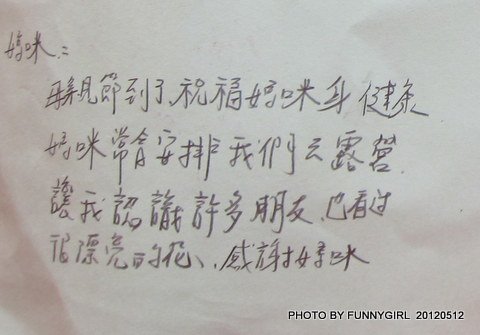 媽咪：
母親節到了,祝福媽咪身健康
媽咪常會安排我們去露營.
讓我認識許多朋友,也看过
很漂亮的花、感謝媽咪
PHOTO BY FUNNYGIRL 20120512